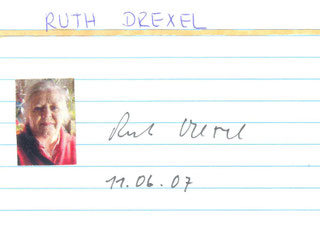 RUTH DREXEL
Ruth Drexel
11.06.07